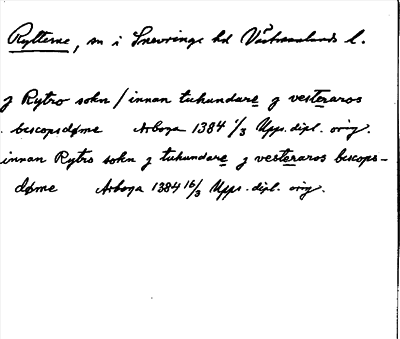 Rytterne, sn i Snevringe hd Västmanlands l.
j Rytro sokn / innan tuhundare j vesteraros
biscopsdøme Arboga 1384 1/3 Upps. dipl. orig.
innan Rytro sokn j tuhundare j vesteraros biscops-
døme Arboga 1384 16/3 Upps. dipl. orig.